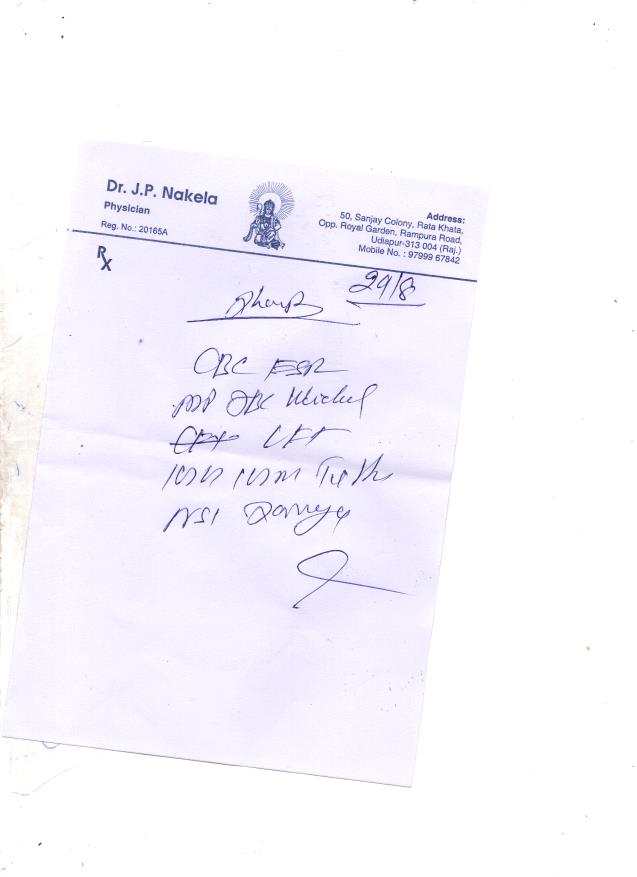 Dr. J.P. Nakela
Physician
Reg. No.: 20165A
Address:
50, Sanjay Colony, Rata Khata,
Opp. Royal Garden, Rampura Road,
Udiapur-313 004 (Raj.)
Mobile No. : 97999 67842
Rx
29/8
CBC ESR
MP DBC Widal
LFT
NS1 Dengue